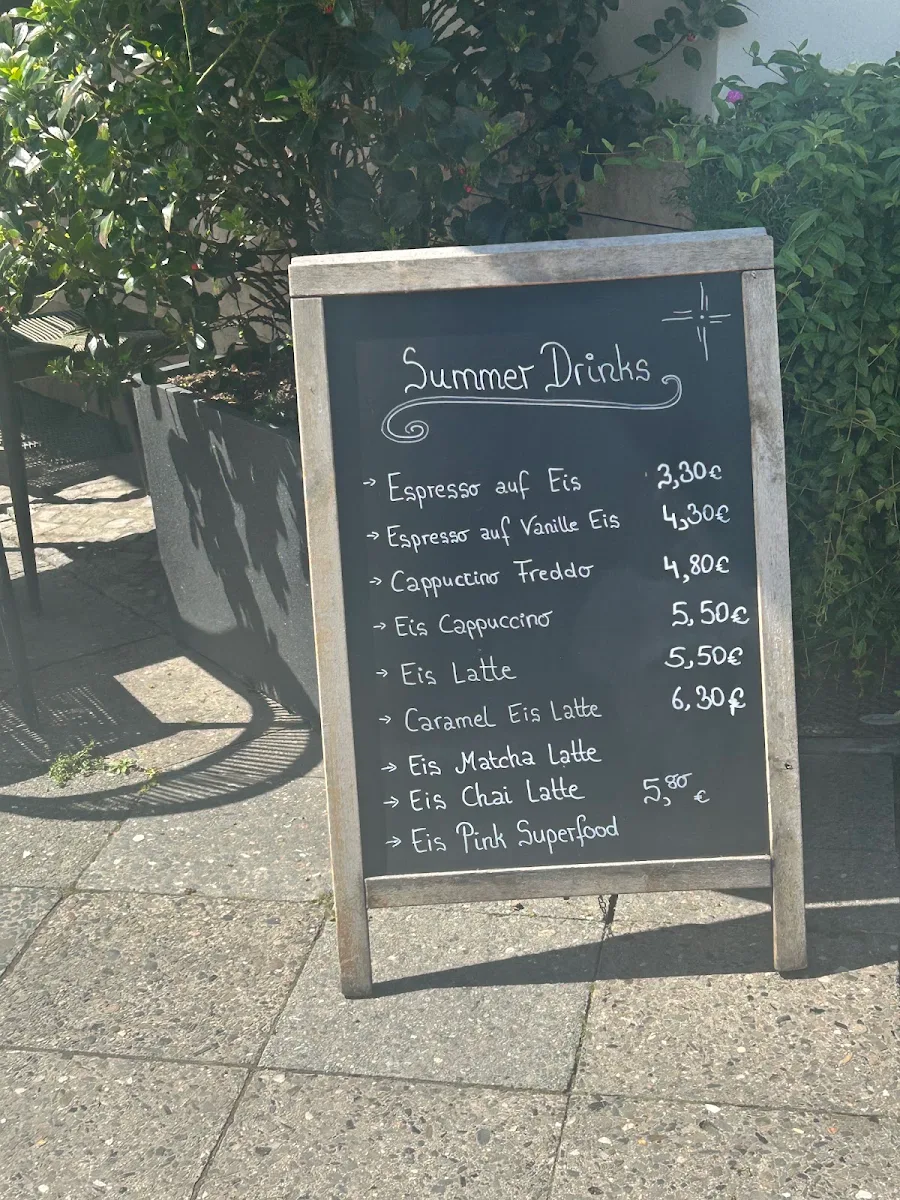 Summer Drinks
→ Espresso auf Eis 3,30€
→ Espresso auf Vanille Eis 4,30€
→ Cappuccino Freddo 4,80€
→ Eis Cappuccino 5,50€
→ Eis Latte 5,50€
→ Caramel Eis Latte 6,30€
→ Eis Matcha Latte
→ Eis Chai Latte 5,80€
→ Eis Pink Superfood